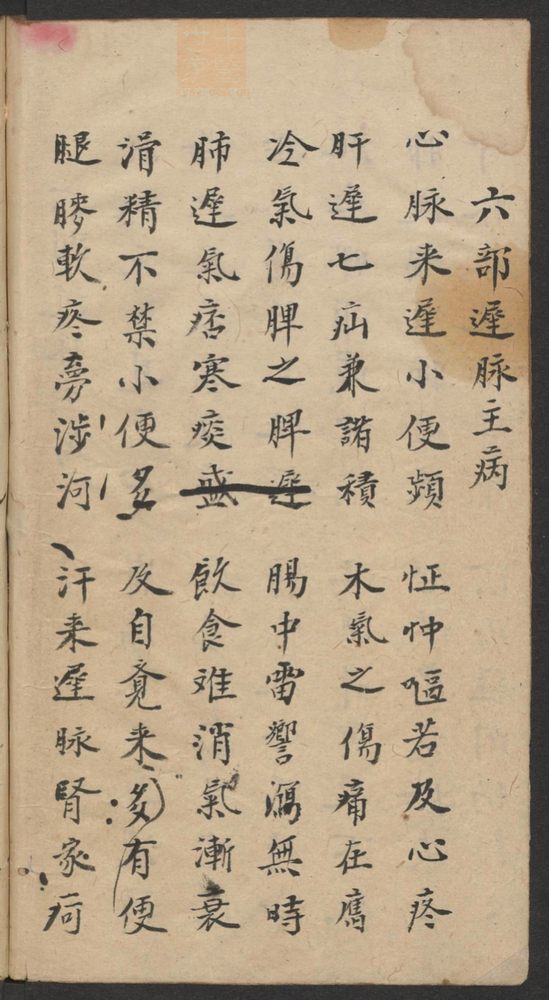 六部遲脉主病
心脉来遲小便頻 怔忡嘔若及心疼
肝遲七疝兼諸積 木氣之傷痛在鴈
冷氣傷脾之脾遲 腸中雷響瀉無時
肺遲氣痞寒痰盛 飲食难消氣漸衰
滑精不禁小便多 及自竟来多有便
腿膝軟疼旁涉河 汗来遲脉腎家疴